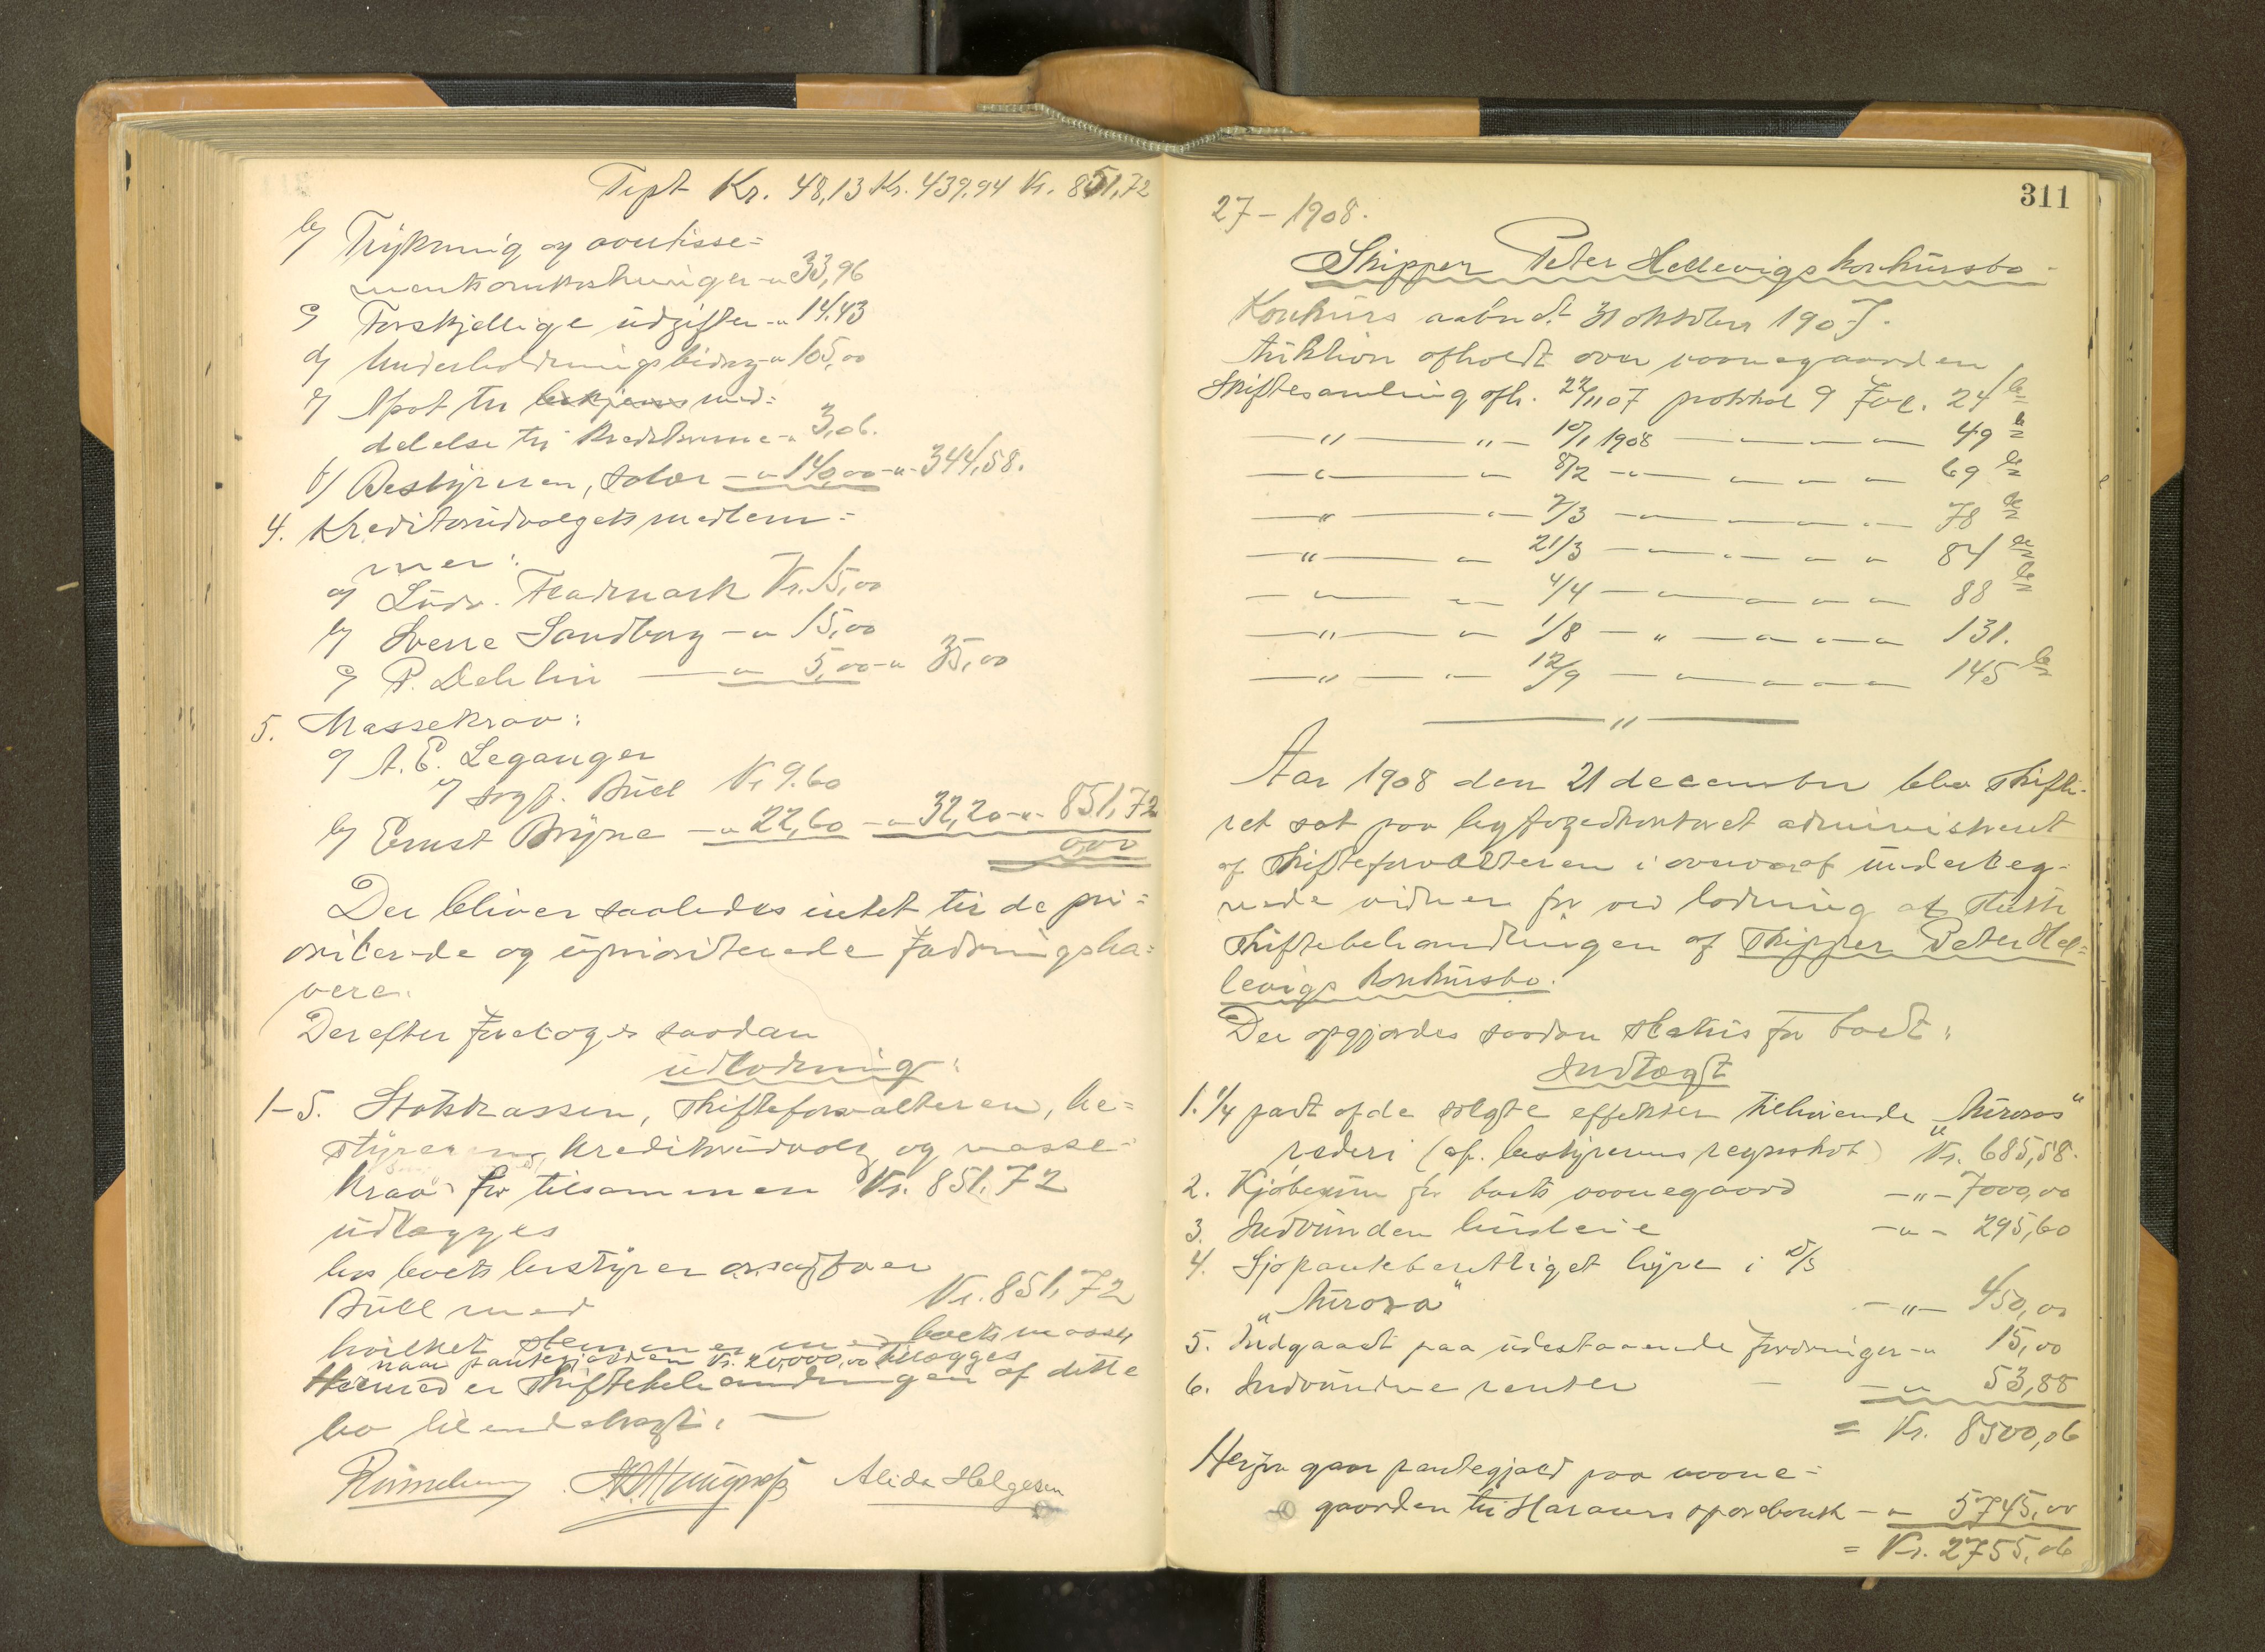 Tipt Kr. 48,13 Kr. 439,94 Kr. 851,72
b) Trykning og avertisse=
mentsomkostninger -"- 33,96
c) Forskjellige udgifter -"- 14,43
d) Underholdningsbidrag -"- 105,00
e) Aport til med=
delelse til kreditorerne -"- 3,06.
f) Bestyreren, salær -"- 140,00 -"- 344,58.
4. Kreditorudvalgets medlem=
mer:
a) Ludv. Fladmark Kr. 15,00
b) Sverre Sandborg -"- 15,00
c) P. Dehlin -"- 5,00 -"- 35,00
5. Massekrav:
a) A. E. Leganger
v/ sagf. Bull Kr 9.60
b) Ernst Bryne -"- 22,60 -"- 32,20 -"- 851,72
0,00
Der bliver saaledes intet til de pri=
oriterede og uprioriterede fordringsha=
vere.
Derefter foretoges saadan
udlodning:
1-5. Statskassen, skifteforvalteren, be=
styreren, kreditorudvalg og masse=
krav for tilsammen Kr. 851,72
udlægges
hos boets bestyrer o.r.sagfører
Bull med Kr. 851,72
hvilket stemmer med boets masse
naar pantegjælden Kr. 20,000,00 tillægges
Hermed er skiftebehandlingen af dette
bo tilendebragt. —
Alida Helgesen
311
27 - 1908.
Skipper Peter Hellevigs konkursbo.
Konkurs aabnet 31 oktober 1907.
Auktion afholdt over vaanegaarden
Skiftesamling afh. 22/11 07 protokol 9 Fol. 24 b
— " — " — 10/1 1908 — — — — 49 b
— " — " 8/2 — " — " — " — 69 b
— " — " 7/3 — " — " — " — 78 b
— " — " 21/3 — " — " — " — 84 b
— " — " 4/4 — " — " — " — 88 b
— " — " 1/8 — " — " — " — 131.
— " — " 12/9 — " — " — " — 145 b
— " —
Aar 1908 den 21 december blev skifte-
ret sat paa byfogedkontoret administreret
af skifteforvalteren i overvær af underteg-
nede vidner for ved lodning at slutte
skiftebehandlingen af Skipper Peter Hel=
levigs konkursbo.
Der opgjordes saadan status for boet:
Indtægt
1. 1/4 part af de solgte effekter tilhørende "Auroras"
rederi (cfr. bestyrerens regnskab) Kr. 685,58.
2. Kjøbesum for boets vaanegaard -"- 7000,00
3. Indvunden husleie -"- 295,60
4. Sjøpanteberettiget hyre i D/S
"Aurora" -"- 450,00
5. Indgaaet paa udestaaende fordringer -"- 15,00
6. Indvundne renter -"- 53,88
= Kr. 8500,06
Herfra gaar pantegjæld paa vaane=
gaarden til Harams sparebank -"- 5745,00
= Kr. 2755,06